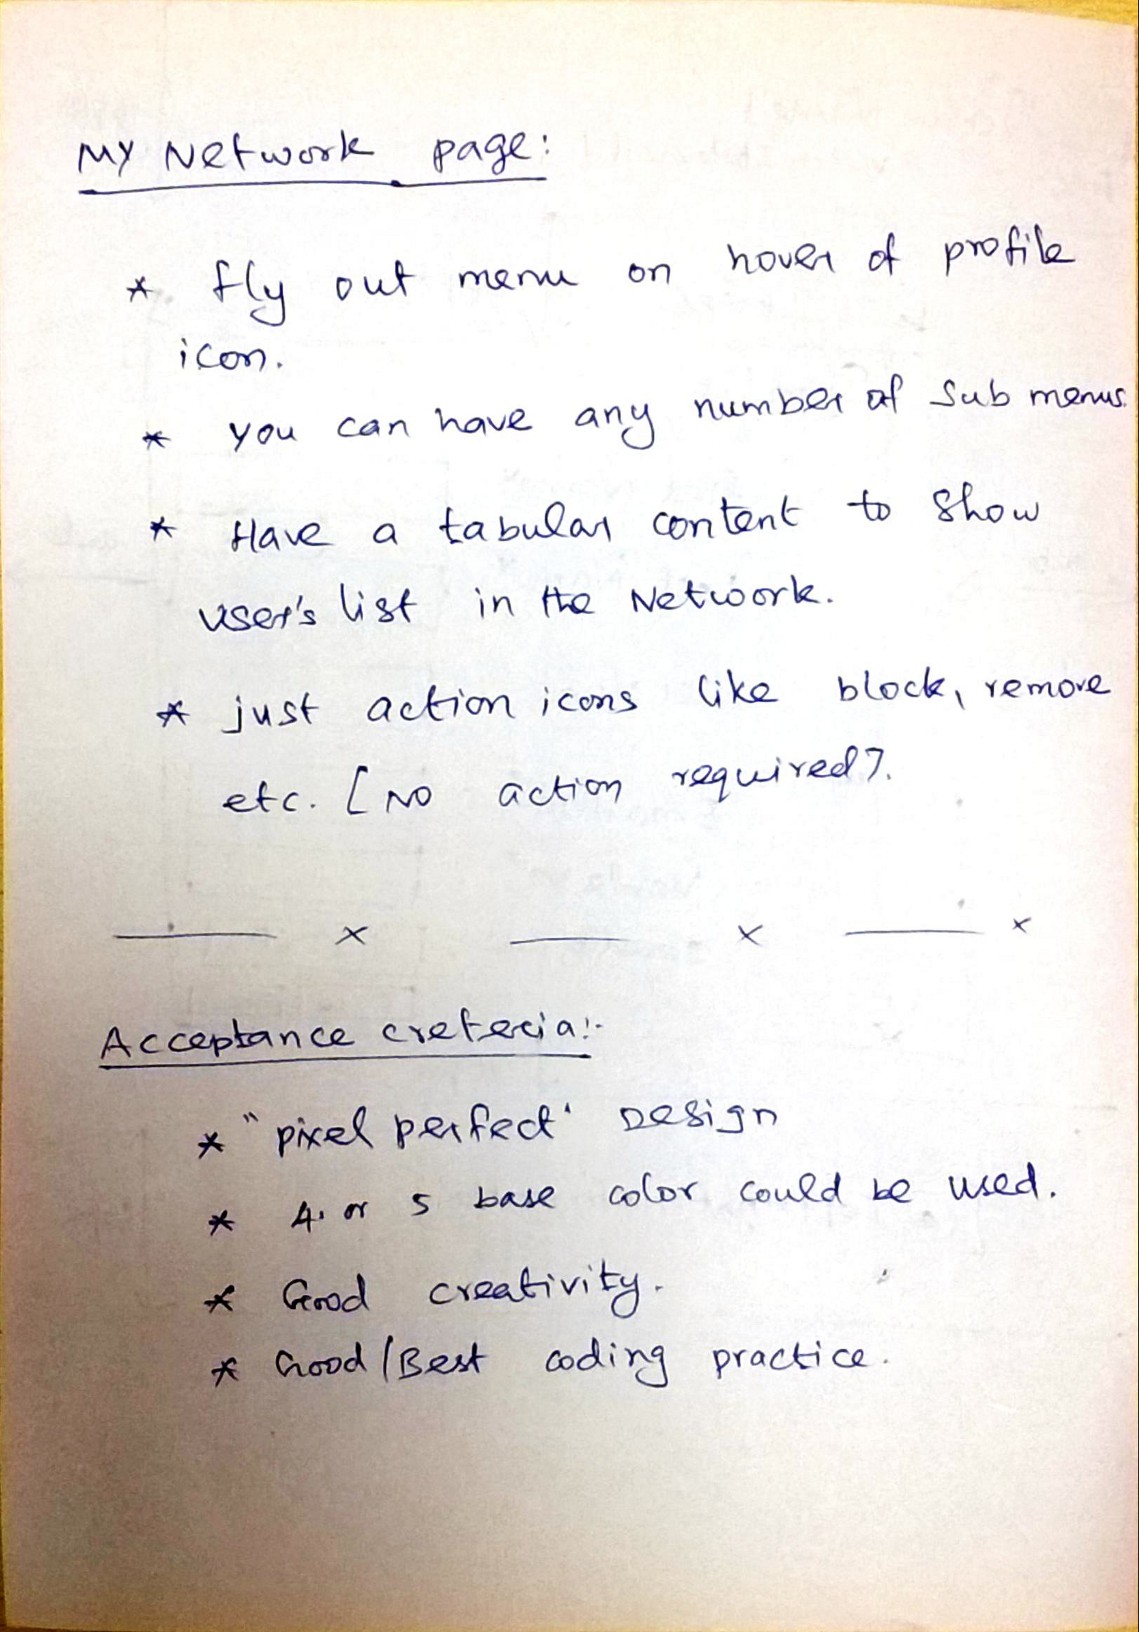 My Network page:
* fly out menu on hover of profile
icon.
* you can have any number of sub menus.
* Have a tabular content to show
user's list in the Network.
* just action icons like block, remove
etc. [No action required].
x x x
Acceptance creteria:-
* "pixel perfect" Design
* 4. or 5 base color could be used.
* Good creativity.
* Good/Best coding practice.